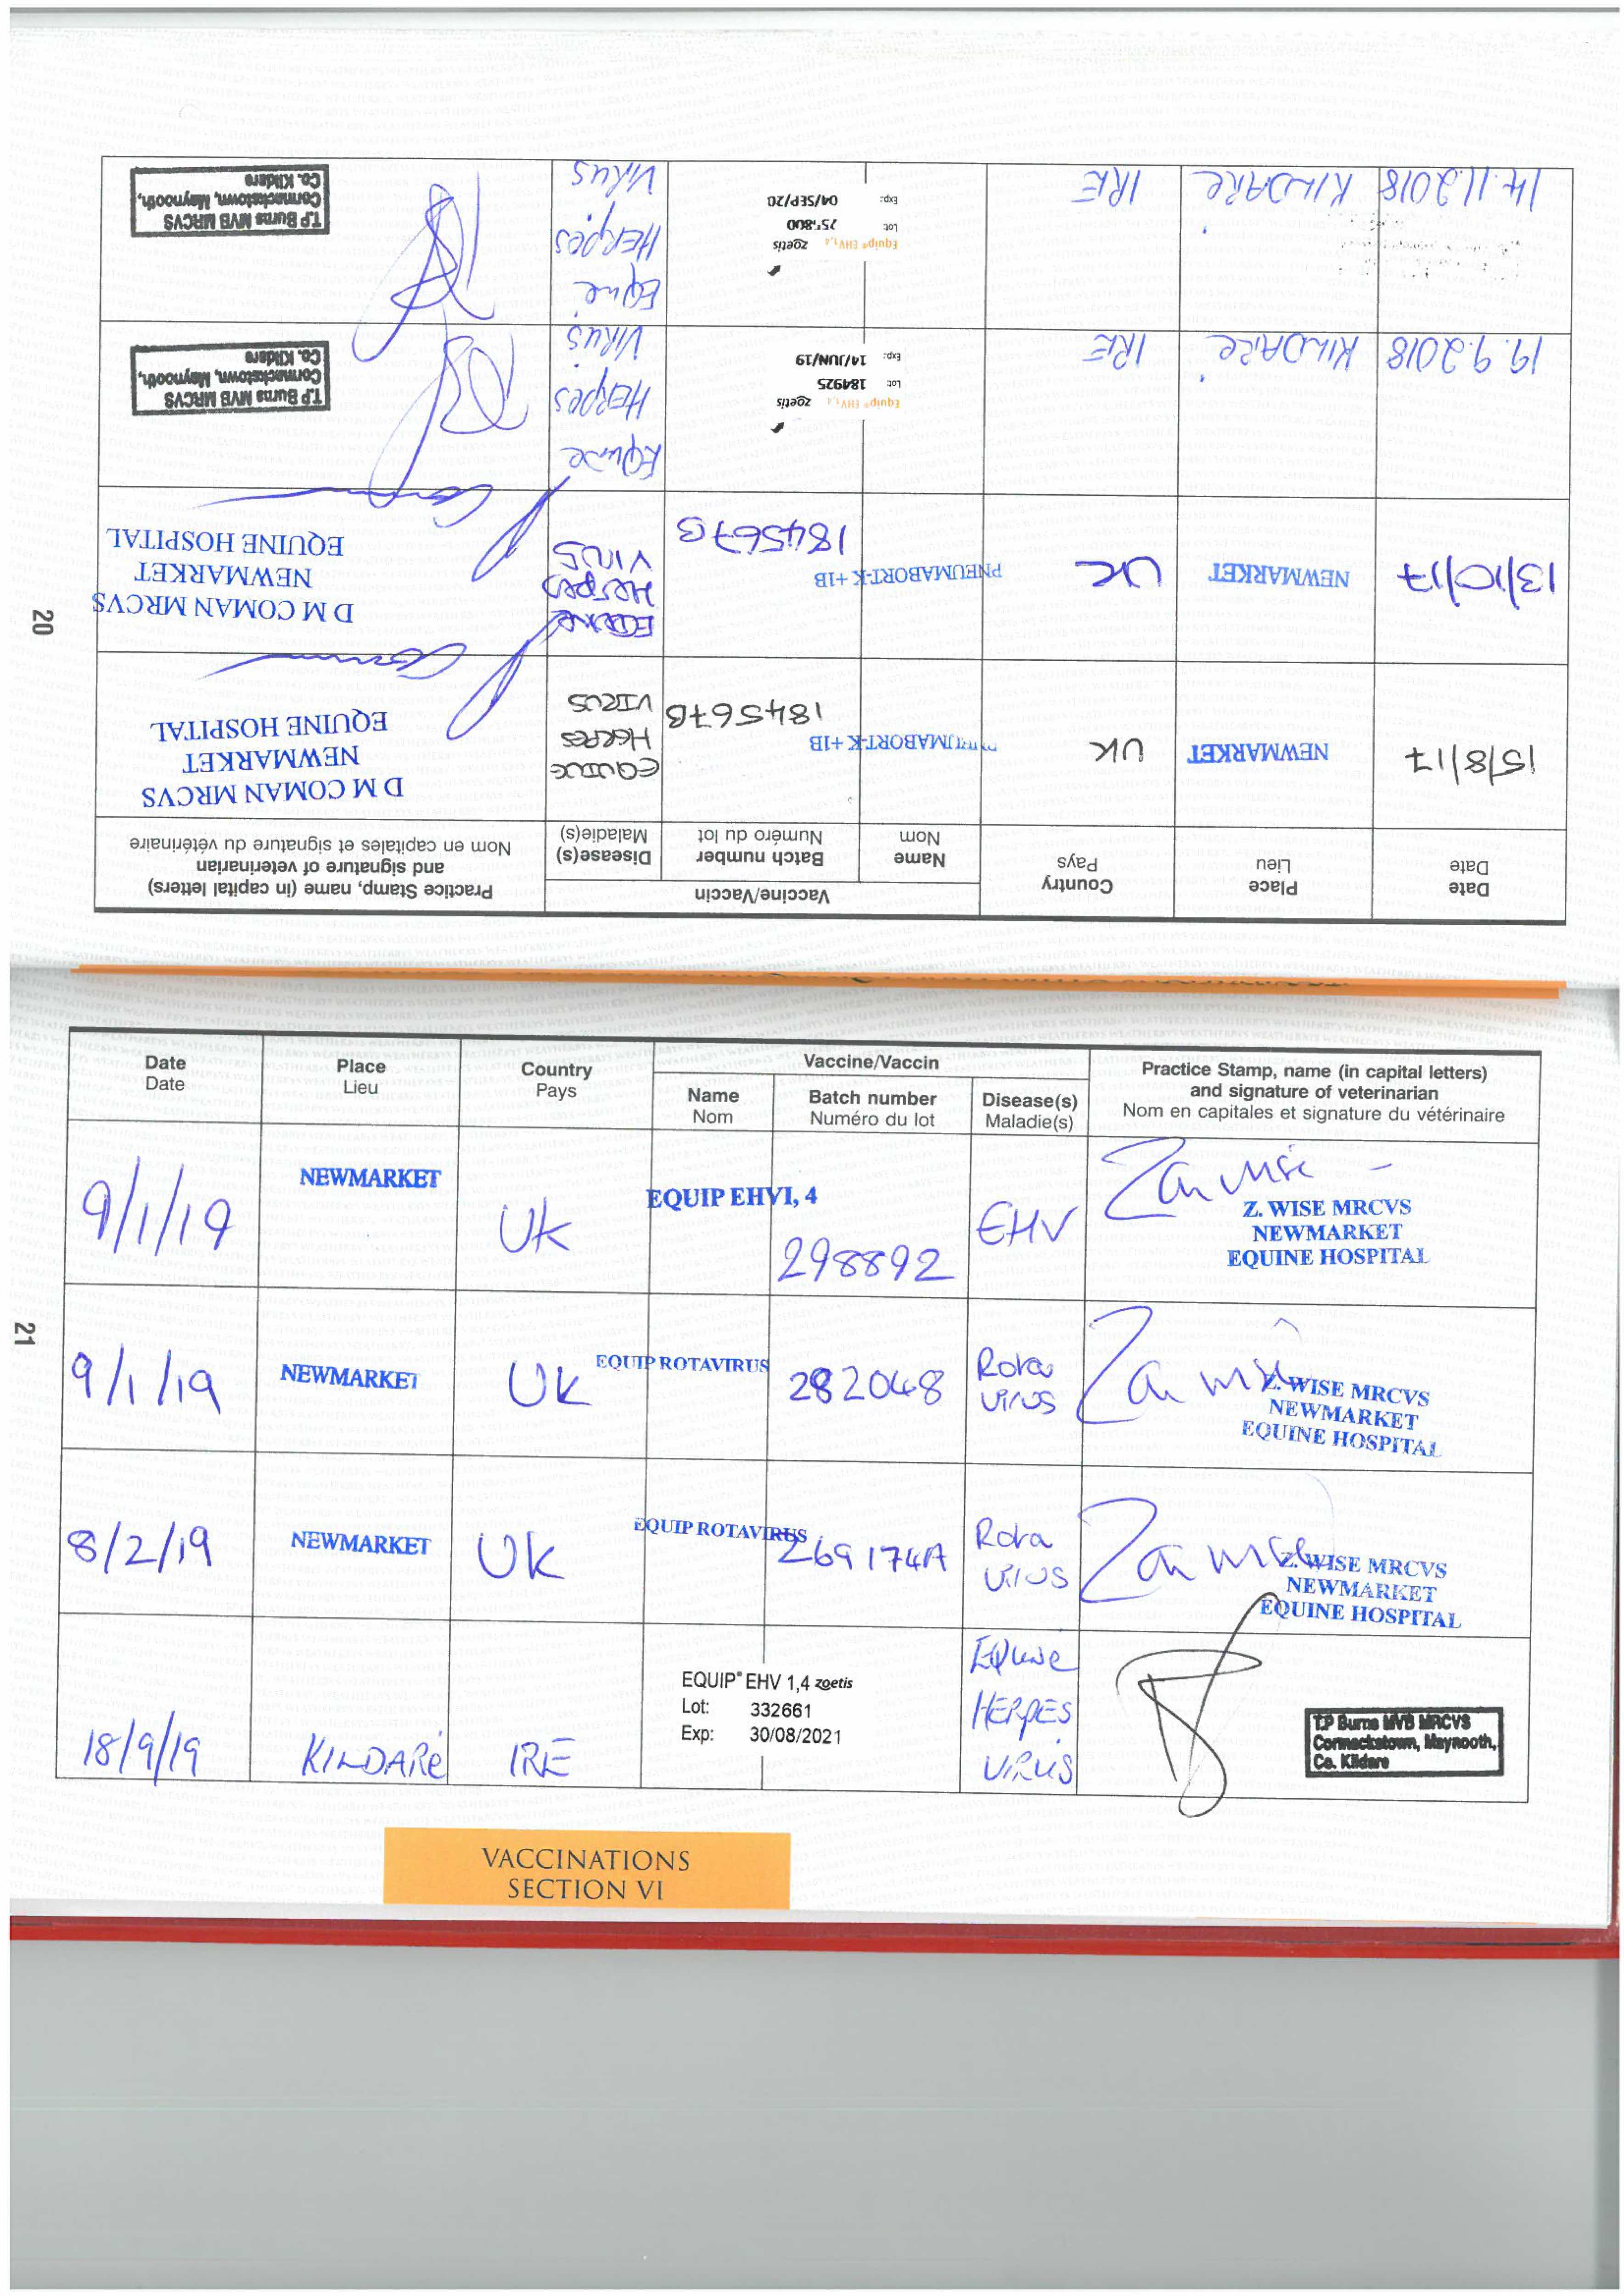 20
Date
Date
Place
Lieu
Country
Pays
Vaccine/Vaccin
Name
Nom
Batch number
Numéro du lot
Disease(s)
Maladie(s)
Practice Stamp, name (in capital letters)
and signature of veterinarian
Nom en capitales et signature du vétérinaire
15/8/17
NEWMARKET
UK
PNEUMABORT-K +1B
184567B
EQUINE
HERPES
VIRUS
D M COMAN MRCVS
NEWMARKET
EQUINE HOSPITAL
13/10/17
NEWMARKET
UK
PNEUMABORT-K +1B
184567B
EQUINE
Herpes
VIRUS
D M COMAN MRCVS
NEWMARKET
EQUINE HOSPITAL
19.9.2018
KILDARE
IRE
Equip® EHV1,4 zoetis
Lot: 184925
Exp: 14/JUN/19
Equine
HERPES
VIRUS
T.P Burns MVB MRCVS
Connackstown, Maynooth,
Co. Kildare
14.11.2018
KILDARE
IRE
Equip® EHV1,4 zoetis
Lot:
Exp: 04/SEP/20
Equine
HERPES
VIRUS
T.P Burns MVB MRCVS
Connackstown, Maynooth,
Co. Kildare
21
Date
Date
Place
Lieu
Country
Pays
Vaccine/Vaccin
Name
Nom
Batch number
Numéro du lot
Disease(s)
Maladie(s)
Practice Stamp, name (in capital letters)
and signature of veterinarian
Nom en capitales et signature du vétérinaire
9/1/19
NEWMARKET
UK
EQUIP EHVI, 4
298892
EHV
Z. WISE MRCVS
NEWMARKET
EQUINE HOSPITAL
9/1/19
NEWMARKET
UK
EQUIP ROTAVIRUS
282048
Rota
virus
Z. WISE MRCVS
NEWMARKET
EQUINE HOSPITAL
8/2/19
NEWMARKET
UK
EQUIP ROTAVIRUS
269174A
Rota
virus
Z. WISE MRCVS
NEWMARKET
EQUINE HOSPITAL
18/9/19
KILDARE
IRE
EQUIP® EHV 1,4 zoetis
Lot: 332661
Exp: 30/08/2021
Equine
HERPES
VIRUS
T.P Burns MVB MRCVS
Connackstown, Maynooth,
Co. Kildare
VACCINATIONS
SECTION VI